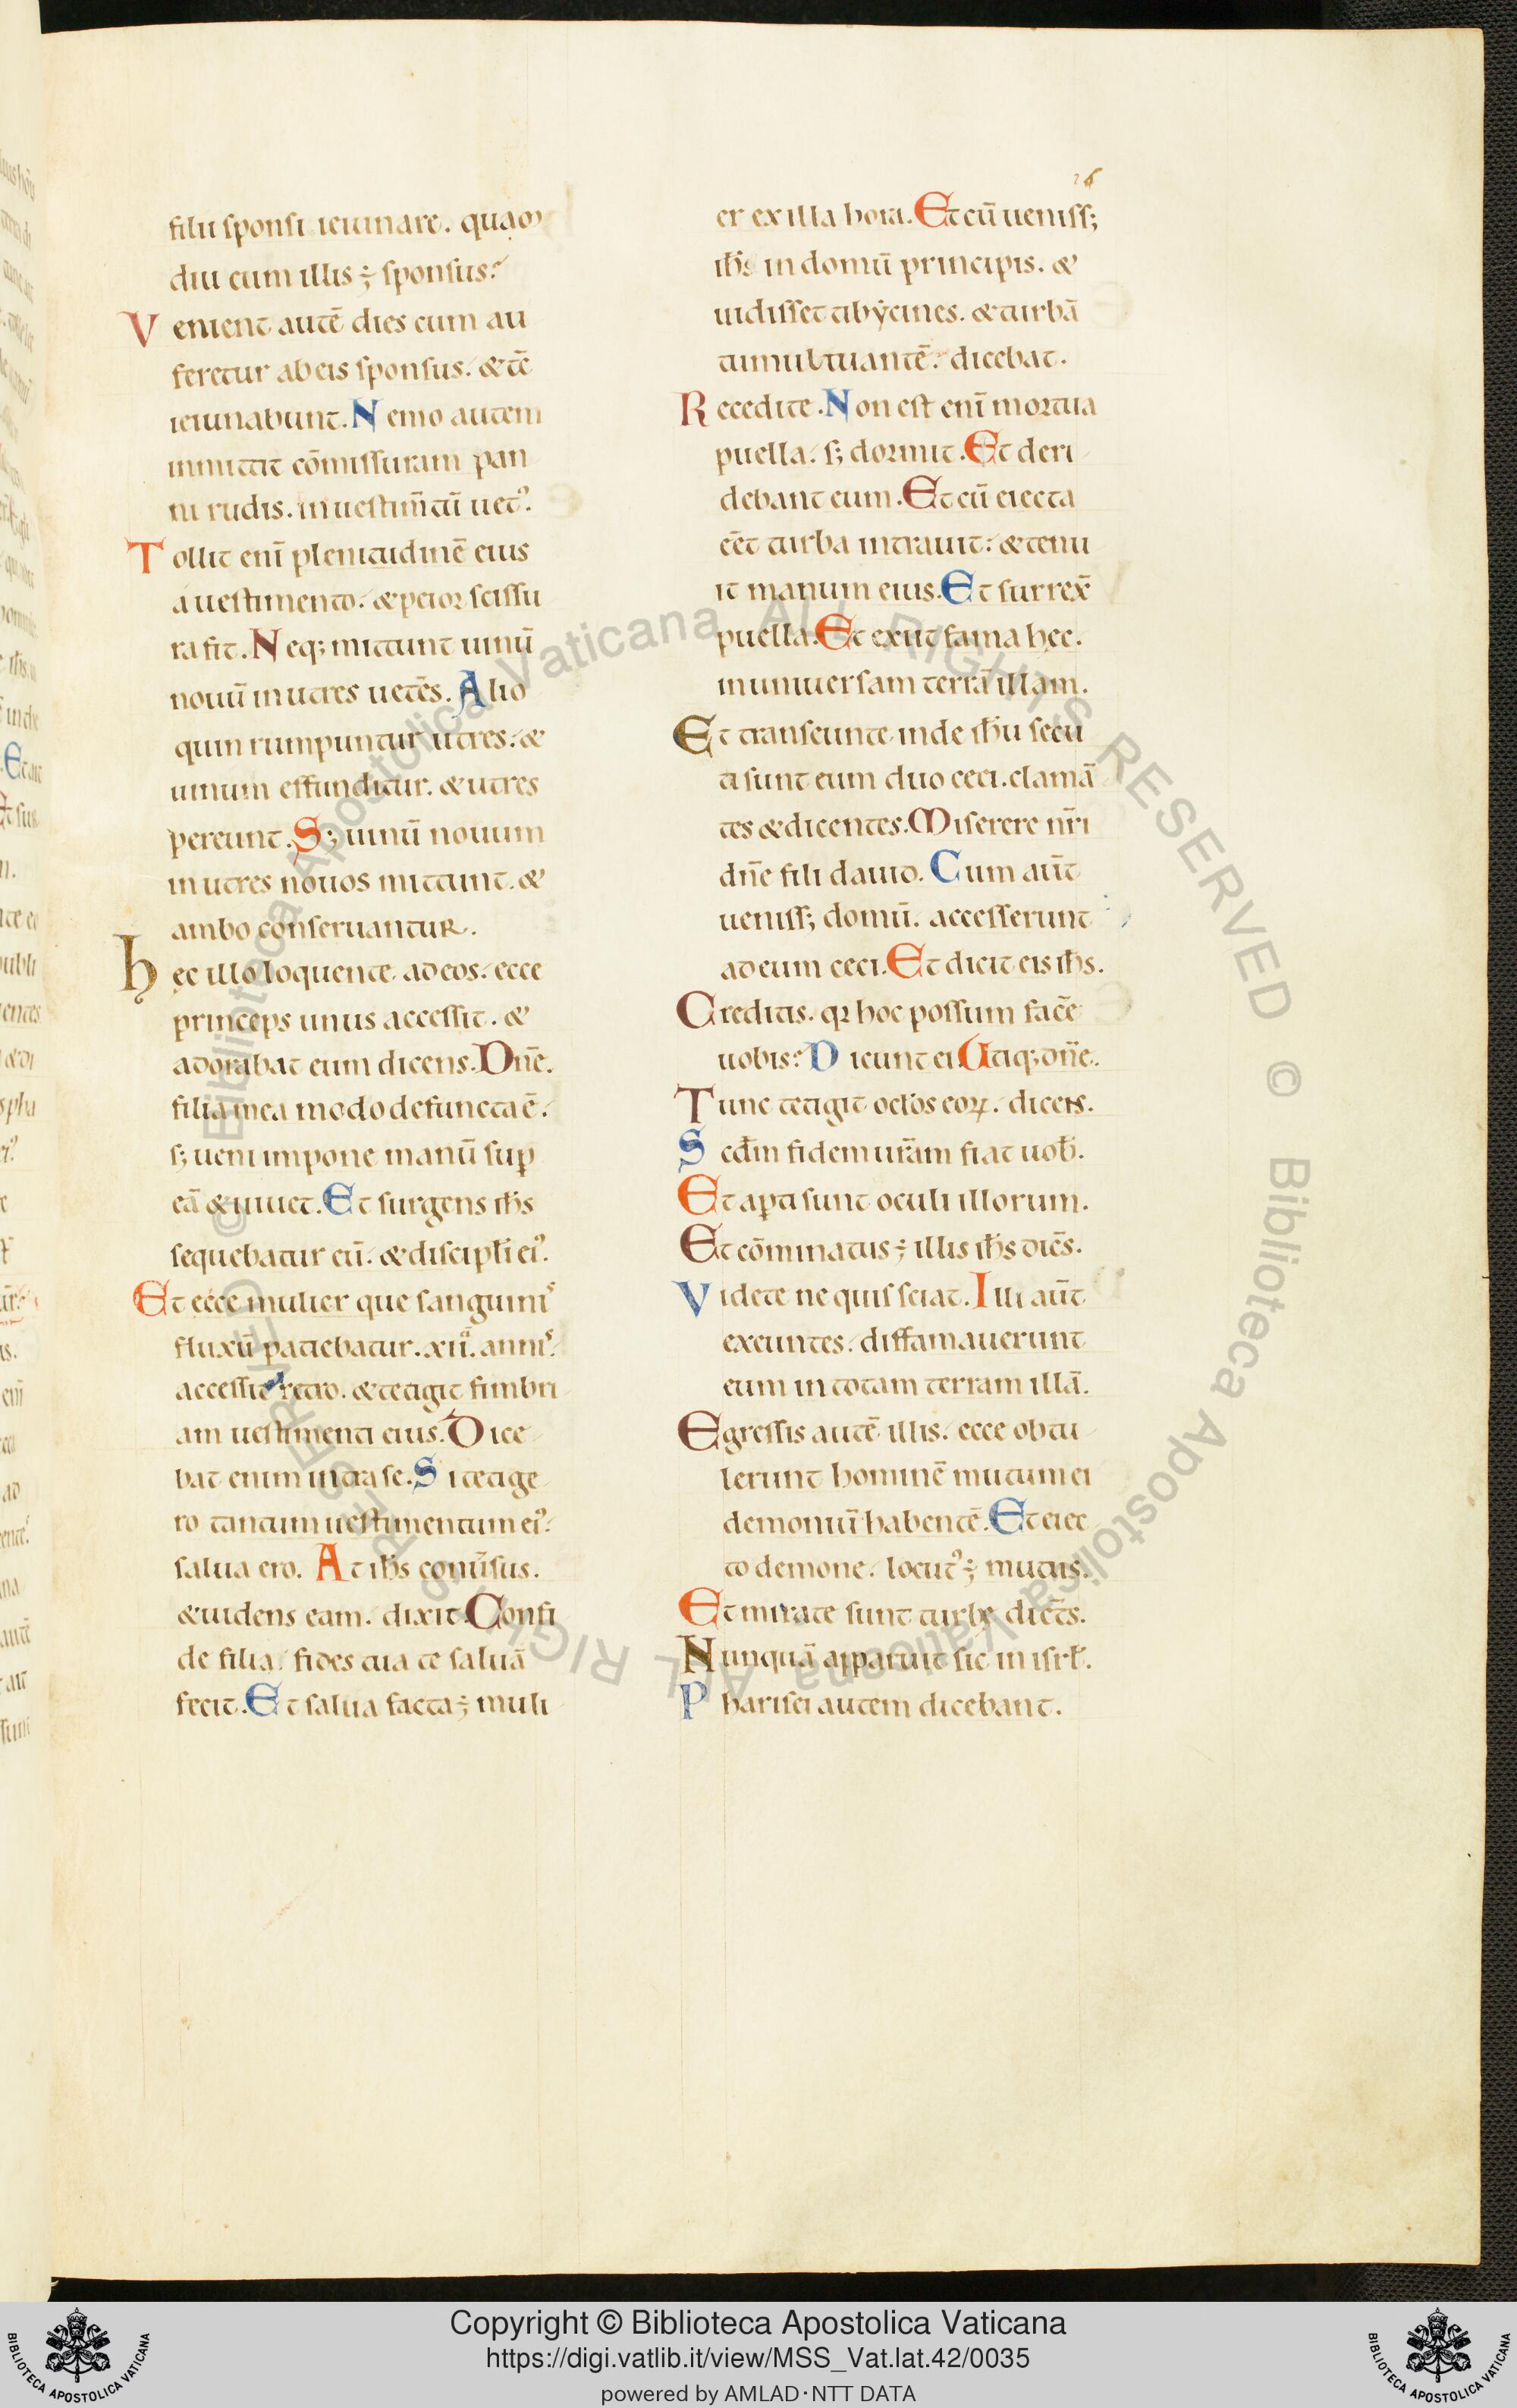 26
filii sponsi ieiunare. quam
diu cum illis ÷ sponsus?
Venient autē dies cum au
feretur ab eis sponsus. &tc̄
ieiunabunt. Nemo autem
inmittit cōmissuram pan
ni rudis. in uestim̄tū uet᾽.
Tollit enī plenitudinē eius
a uestimento. & peior scissu
ra fit. Neq; mittunt uinū
nouū in utres uetēs. Alio
quin rumpuntur utres. &
uinum effunditur. & utres
pereunt. S; uinū nouum
in utres nouos mittunt. &
ambo conseruantur.
hęc illo loquente ad eos. ecce
princeps unus accessit. &
adorabat eum dicens. Dn̄e.
filia mea modo defuncta ē.
s; ueni impone manū sup̄
eā & uiuet. Et surgens ih̄s
sequebatur eū. & discipl̄i ei᾽.
Et ecce mulier que sanguinis
fluxū patiebatur .xii. annis.
accessit retro. & tetigit fimbri
am uestimenti eius. Dice
bat enim intra se. Si tetige
ro tantum uestimentum ei᾽.
salua ero. At ih̄s conūsus.
& uidens eam. dixit. Confi
de filia. fides tua te saluā
fecit. Et salua facta ÷ muli
er ex illa hora. Et cū ueniss;
ih̄s in domū principis. &
uidisset tibycines. & turbā
tumultuantē. dicebat.
Recedite. Non est enī mortua
puella. s; dormit. Et deri
debant eum. Et cū eiecta
eēt turba intrauit. & tenu
it manum eius. Et surrex̄
puella. Et exiit fama hęc.
in uniuersam terrā illam.
Et transeunte inde ih̄u secu
ti sunt eum duo ceci. clamā
tes & dicentes. Miserere nr̄i
dn̄e fili dauid. Cum aūt
ueniss; domū. accesserunt
ad eum ceci. Et dicit eis ih̄s.
Creditis. qꝛ hoc possum facēe
uobis? Dicunt ei Utiq; dn̄e.
Tunc tetigit ocl̄os eoꝝ. dicens.
Secd̄m fidem ur̄am fiat uob̄.
Et ap̄ti sunt oculi illorum.
Et cōminatus ÷ illis ih̄s dicēs.
Videte ne quis sciat. Illi aūt
exeuntes. diffamauerunt
eum in totam terram illā.
Egressis autē illis. ecce obtu
lerunt hominē mutum ei
demoniū habentē. Et eiec
to demone. locut᾽ ÷ mutus.
Et mirate sunt turbę dicēts.
Nunquā apparuit sic in isrl̄.
Pharisei autem dicebant.
Copyright © Biblioteca Apostolica Vaticana
https://digi.vatlib.it/view/MSS_Vat.lat.42/0035
powered by AMLAD·NTT DATA
BIBLIOTECA APOSTOLICA VATICANA
BIBLIOTECA APOSTOLICA VATICANA